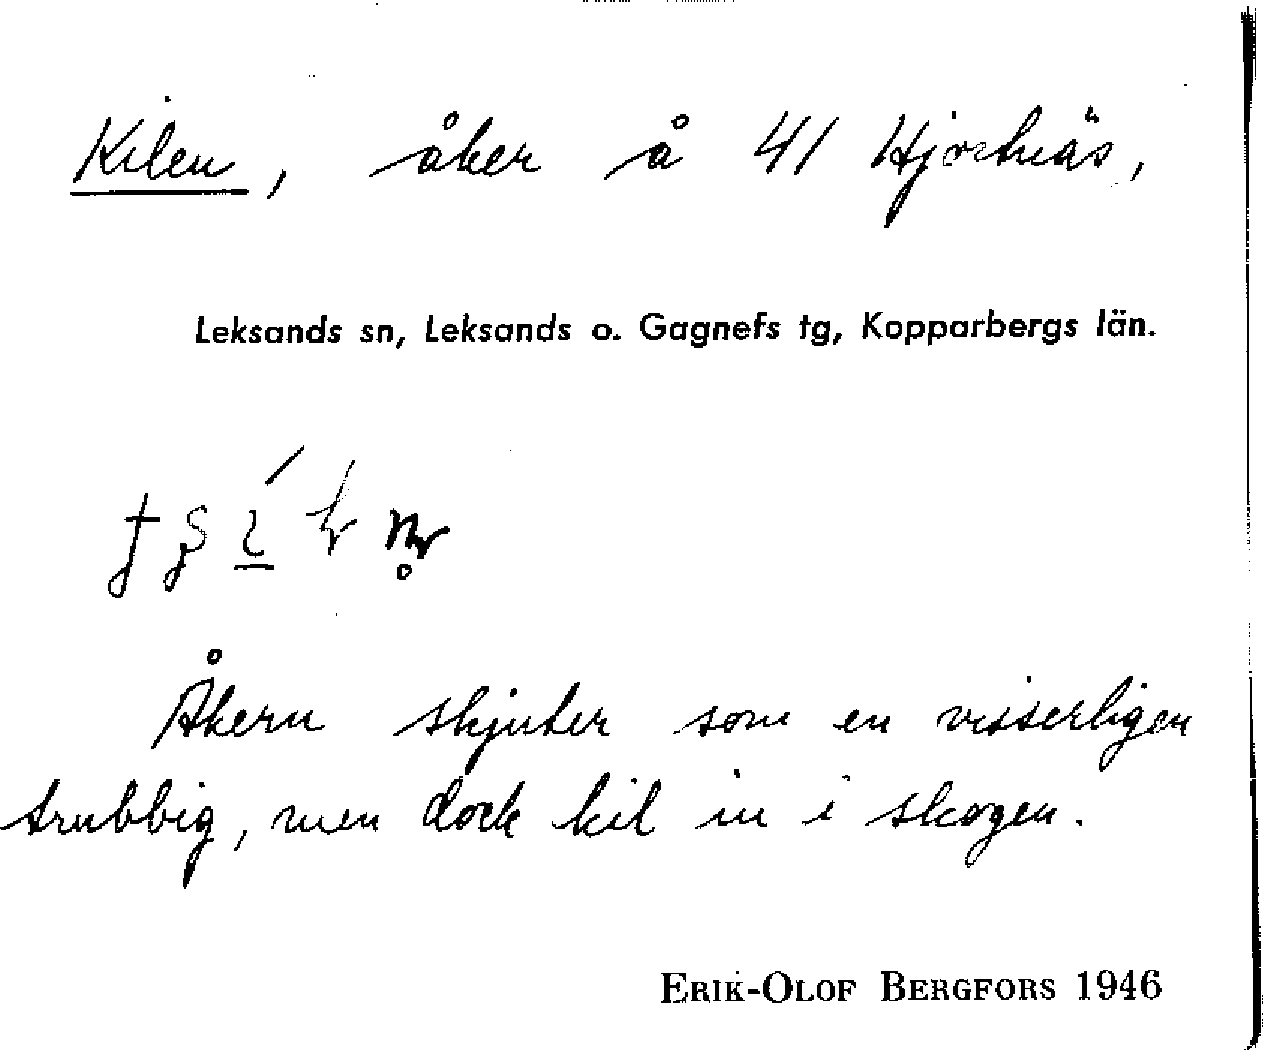 Kilen, åker å 41 Hjortnäs,
Leksands sn, Leksands o. Gagnefs tg, Kopparbergs län.
Åkern skjuter som en visserligen
trubbig, men dock kil in i skogen.
ERIK-OLOF BERGFORS 1946